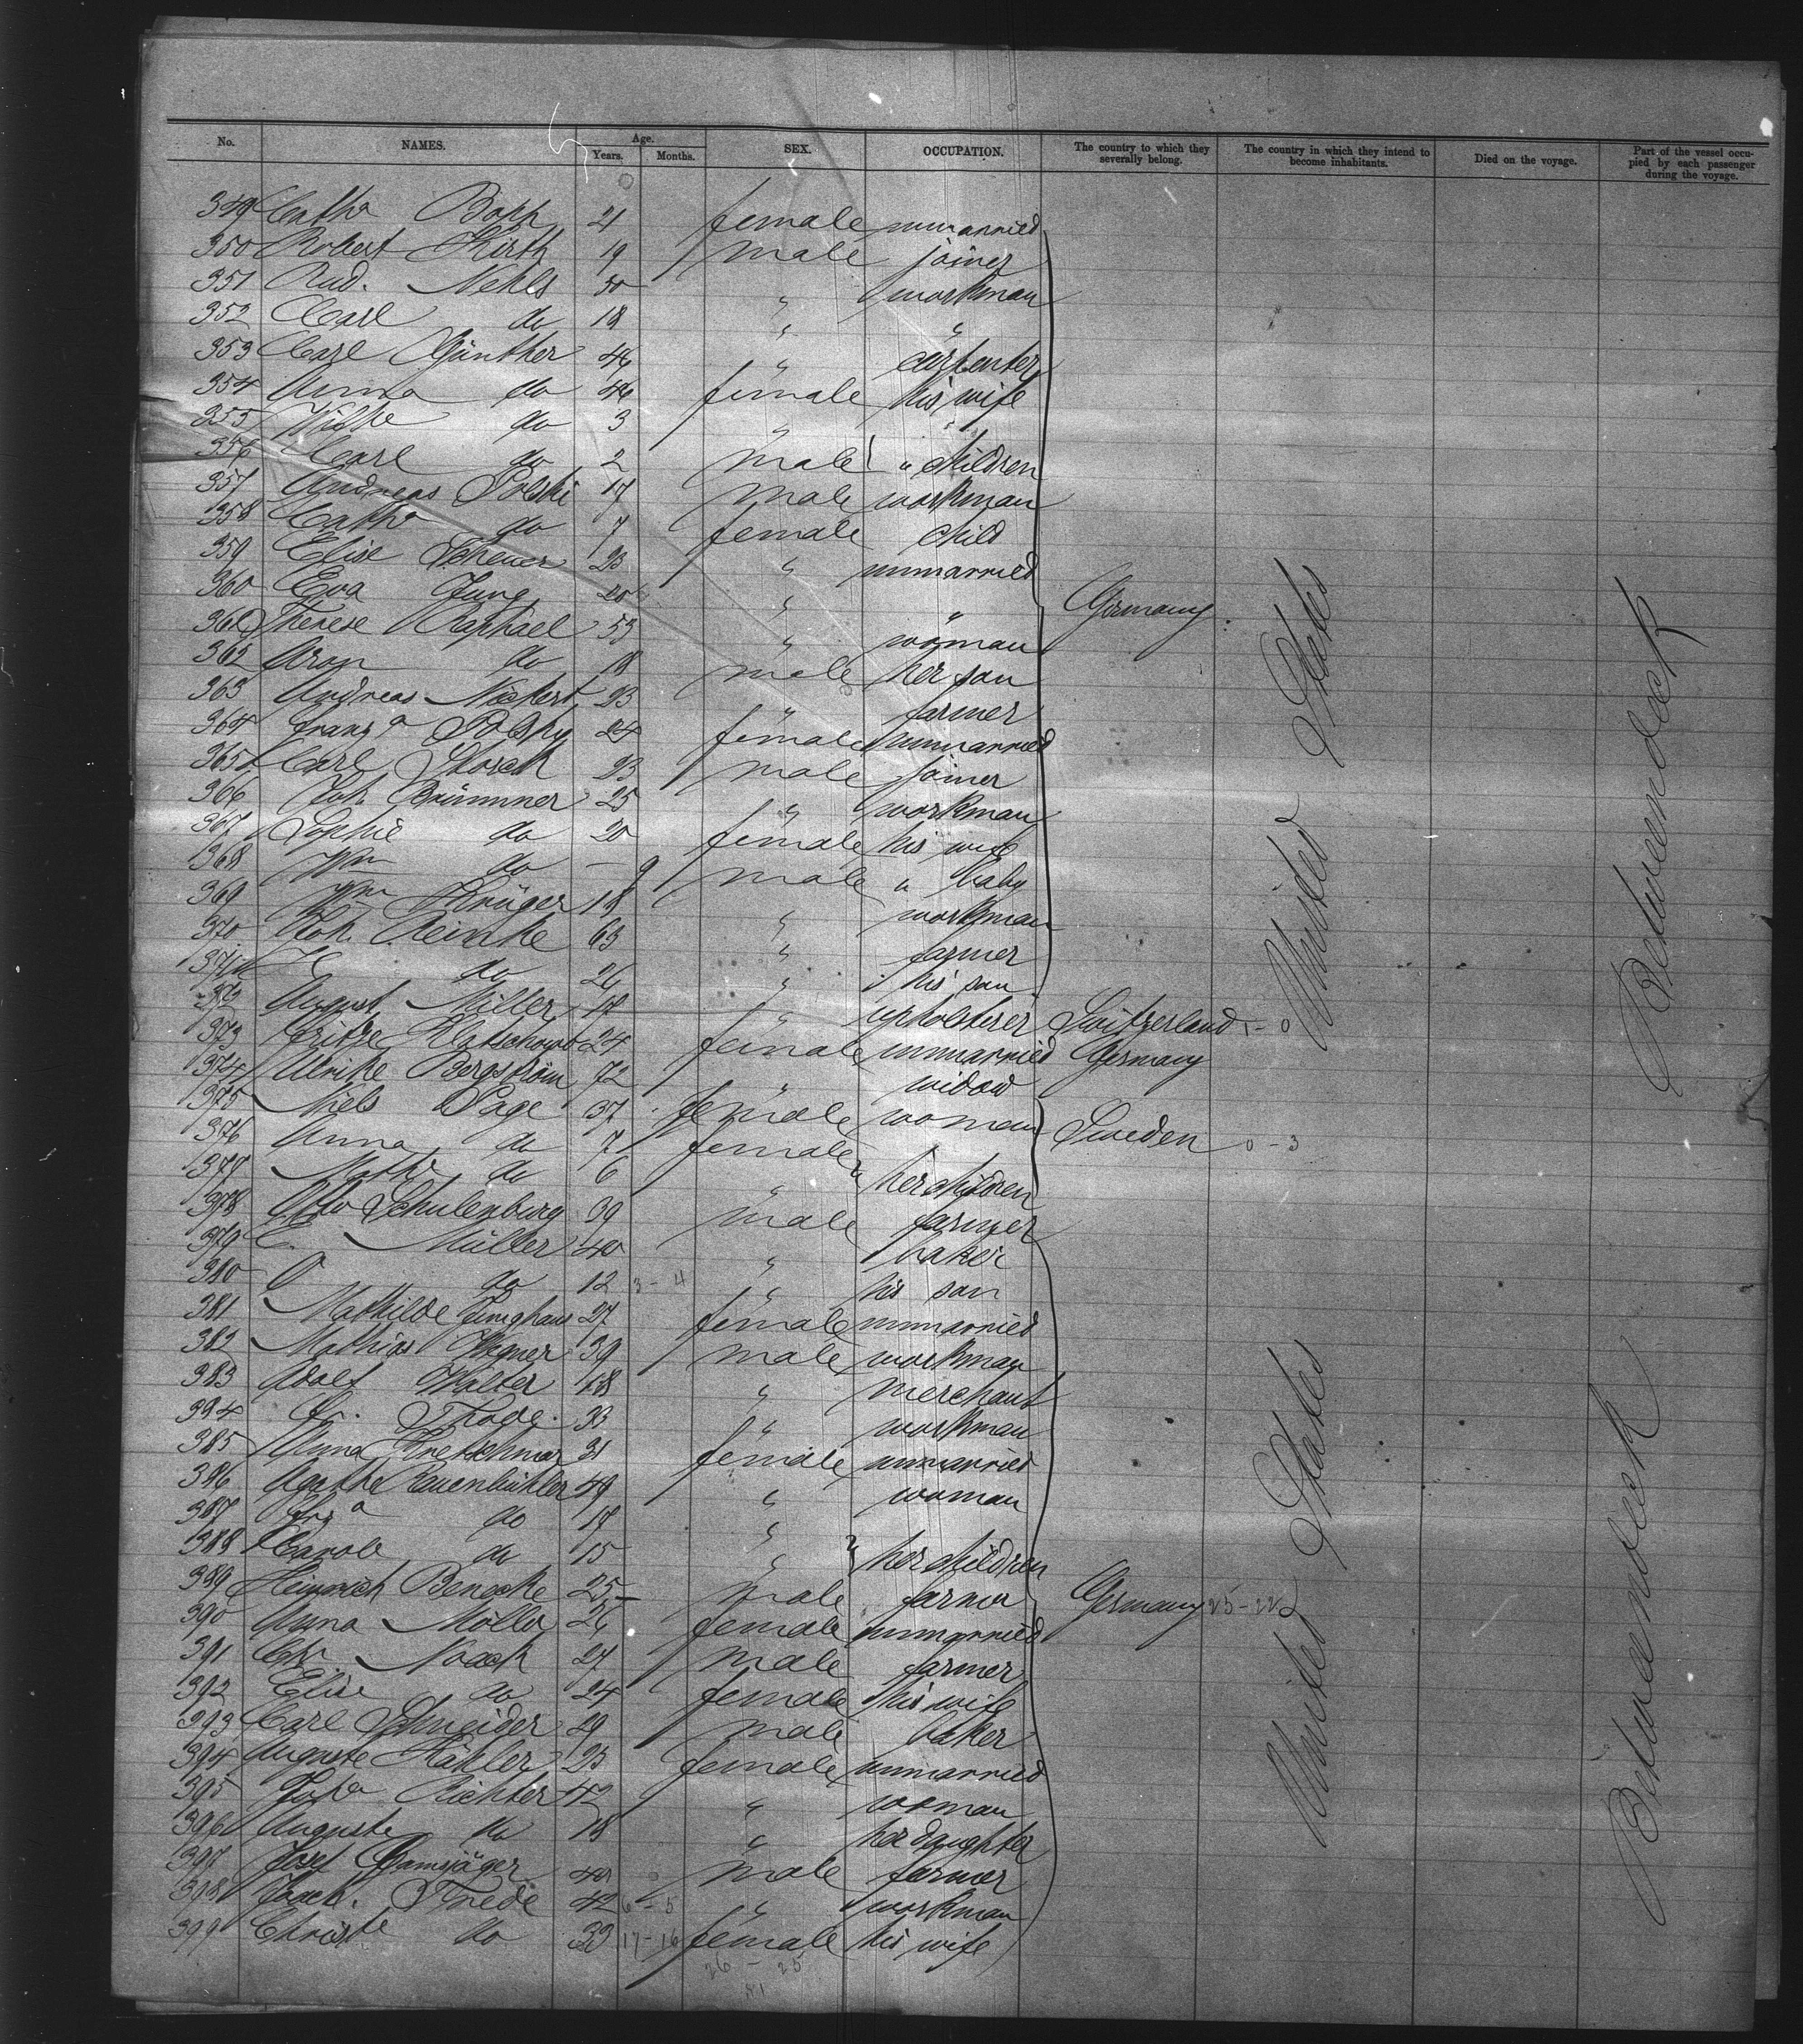 No. NAMES. Age. Years. Months. SEX. OCCUPATION. The country to which they severally belong. The country in which they intend to become inhabitants. Died on the voyage. Part of the vessel occupied by each passenger during the voyage.
349 Cath<sup>a</sup> Bopp 21 female unmarried
350 Robert Hirth 19 male joiner
351 Rud. Nehls 50 " workman
352 Carl do 18 " "
353 Carl Günther 46 " carpenter
354 Anna do 46 female his wife
355 do 3 "
356 Carl do 2 male } " children
357 Andreas Polski 17 male workman
358 Cath<sup>a</sup> do 7 female child
359 Elise Scheuer 23 " unmarried
360 Eva Jung 20 " " Germany
361 Therese Raphael 53 " woman
362 Aron do 18 male her son
363 Andreas 23 " farmer
364 Franz<sup>a</sup> Polsky 24 female unmarried
365 Carl Storch 23 male joiner
366 Joh. Brümmer 25 " workman
367 Sophie do 20 female his wife
368 Wm do — 9 male " baby
369 Wm Krüger 18 " workman
370 Joh. Reinke 63 " farmer
371 do 26 " his son
372 August Miller 17 " upholsterer Switzerland 1 - 0
373 24 female unmarried Germany
374 Ulrike Bergström 72 " widow
375 Niels Page 37 female woman Sweden 0 - 3
376 Anna do 7 female
377 Math<sup>e</sup> do 6 " } her children
378 Otto Schulenburg 39 male farmer
379 C. Müller 40 " baker
380 O do 12 3 - 4 " his son
381 Mathilde Junghans 27 female unmarried
382 Mathias Wagner 39 male workman
383 Adolf Walter 18 " merchant
384 Thode 33 " workman
385 Anna Kretschmar 31 female unmarried
386 Agathe Rauenbühler 49 " woman
387 do 17 "
388 Carole do 15 " } her children
389 Heinrich Benecke 25 male farmer Germany 25 - 22
390 Anna Möller 26 female unmarried
391 Chr. Noack 27 male farmer
392 Elise do 24 female his wife
393 Carl Schneider 29 male baker
394 Auguste Hähler 23 female unmarried
395 Richter 42 " woman
396 Auguste do 18 " her daughter
397 Josef Gamsjäger 40 male farmer
398 Joach. Thiede 42 6 - 5 " workman
399 Christ<sup>e</sup> do 33 17 - 16 female his wife
26 - 25
United States
Betweendeck
United States
Betweendeck